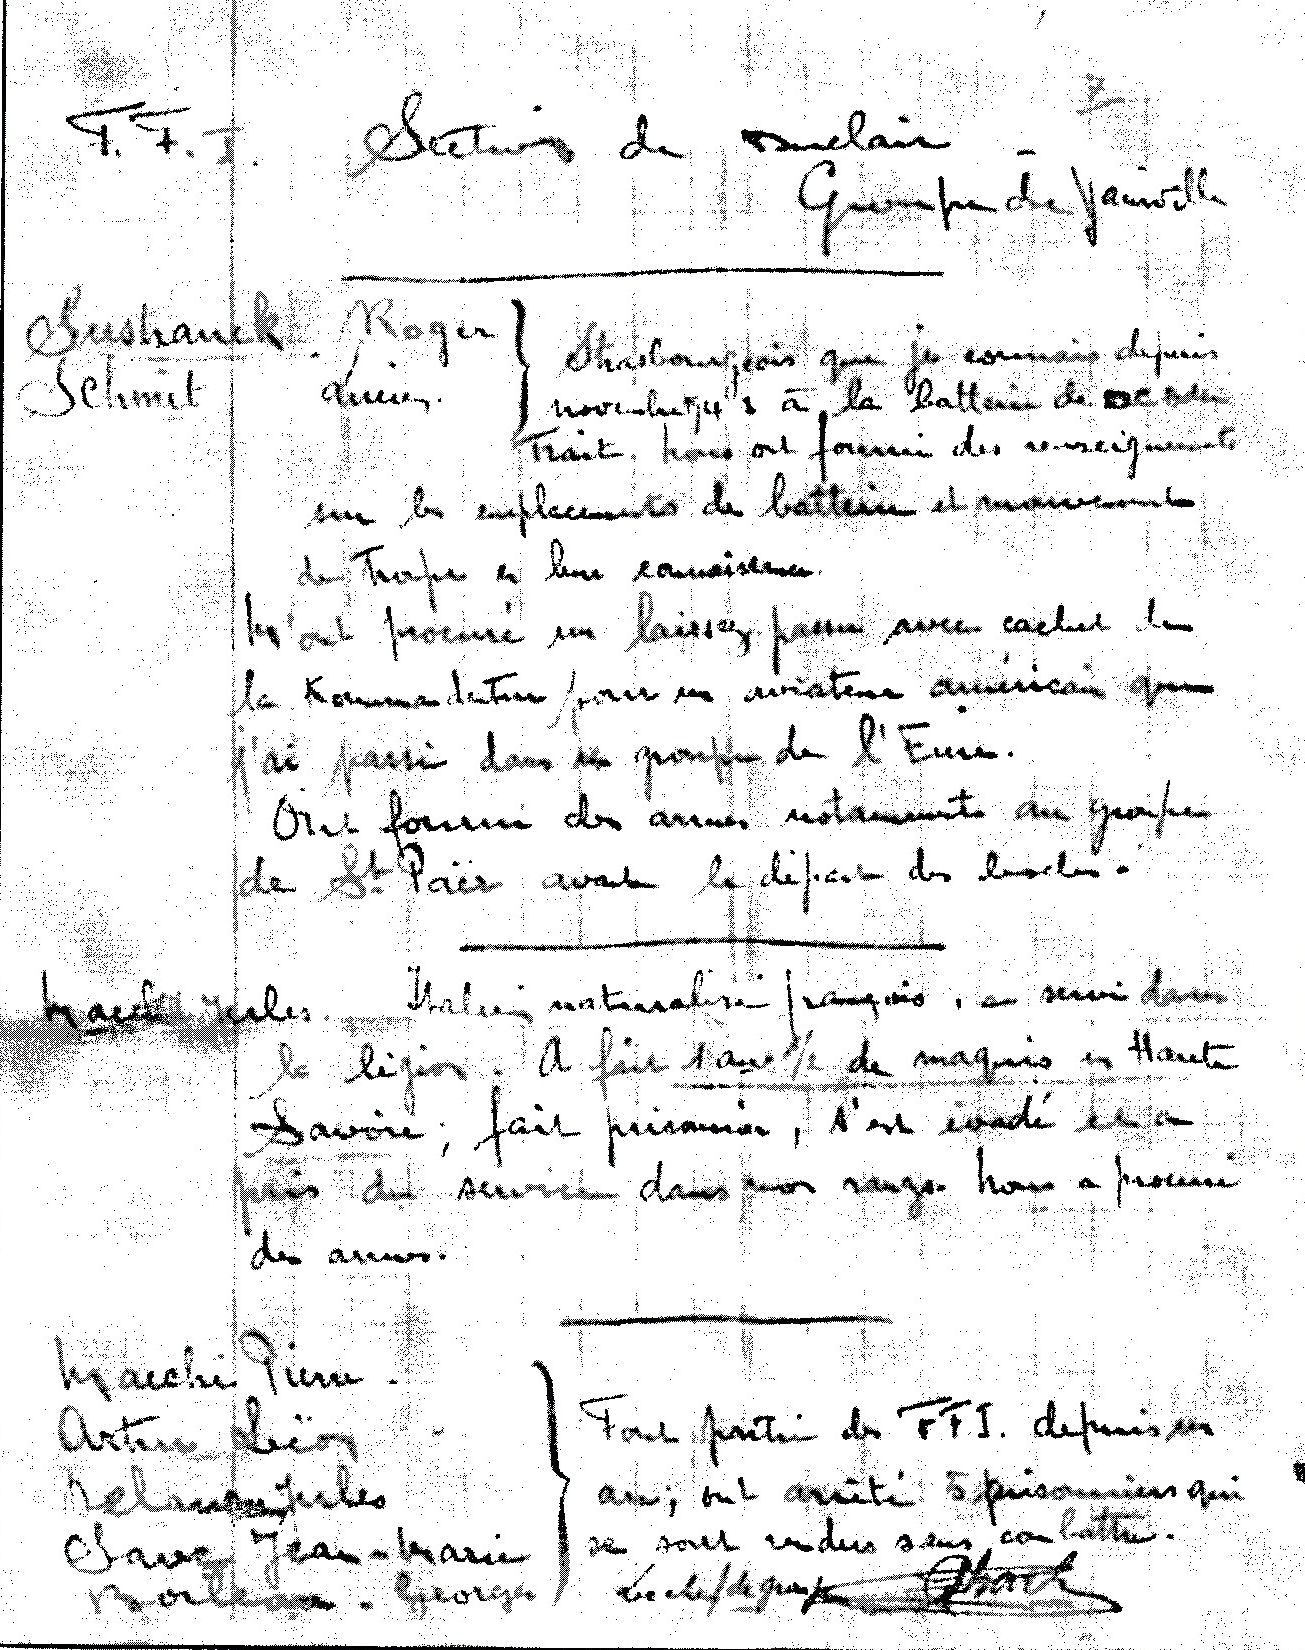 7
F.F.I. Section de Duclair -
Groupe de Yainville
Sushanek. Roger
Schmit Lucien.
Strasbourgeois que je connais depuis
novembre 43 à la batterie de
Trait. Nous ont fourni des renseignements
sur les emplacements de batterie et mouvement
de Troupe à leur connaissance.
M'ont procuré un laissez passer avec cachet de
la Kommadatur pour un aviateur américain que
j'ai passé dans un groupe de l'Eure.
Ont fourni des armes notamment au groupe
de St Paër avant le départ des boches.
Macchi Jules. Italien naturalisé français, a servi dans
la légion. A fait 1 an 1/2 de maquis en Haute
Savoie; fait prisonnier, s'est évadé et a
pris du service dans nos rangs. Nous a procuré
des armes.
Macchi Pierre.
Artur Léon
Jules
Save Jean-Marie
Georges
Font partie des FFI. depuis un
an; ont arrêté 5 prisonniers qui
se sont rendus sans combattre.
Le chef de groupe